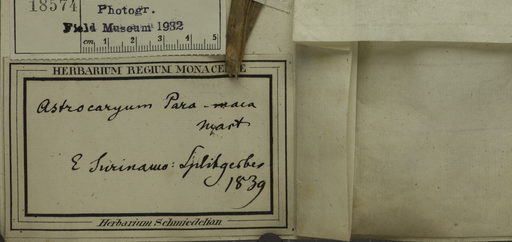 18574
Photogr.
Field Museum 1932
cm. 1 2 3 4 5
HERBARIUM REGIUM MONACENSE
Astrocaryum Para-maca
Mart
E Surinamo: Splitgerber
1839
Herbarium Schmiedelian